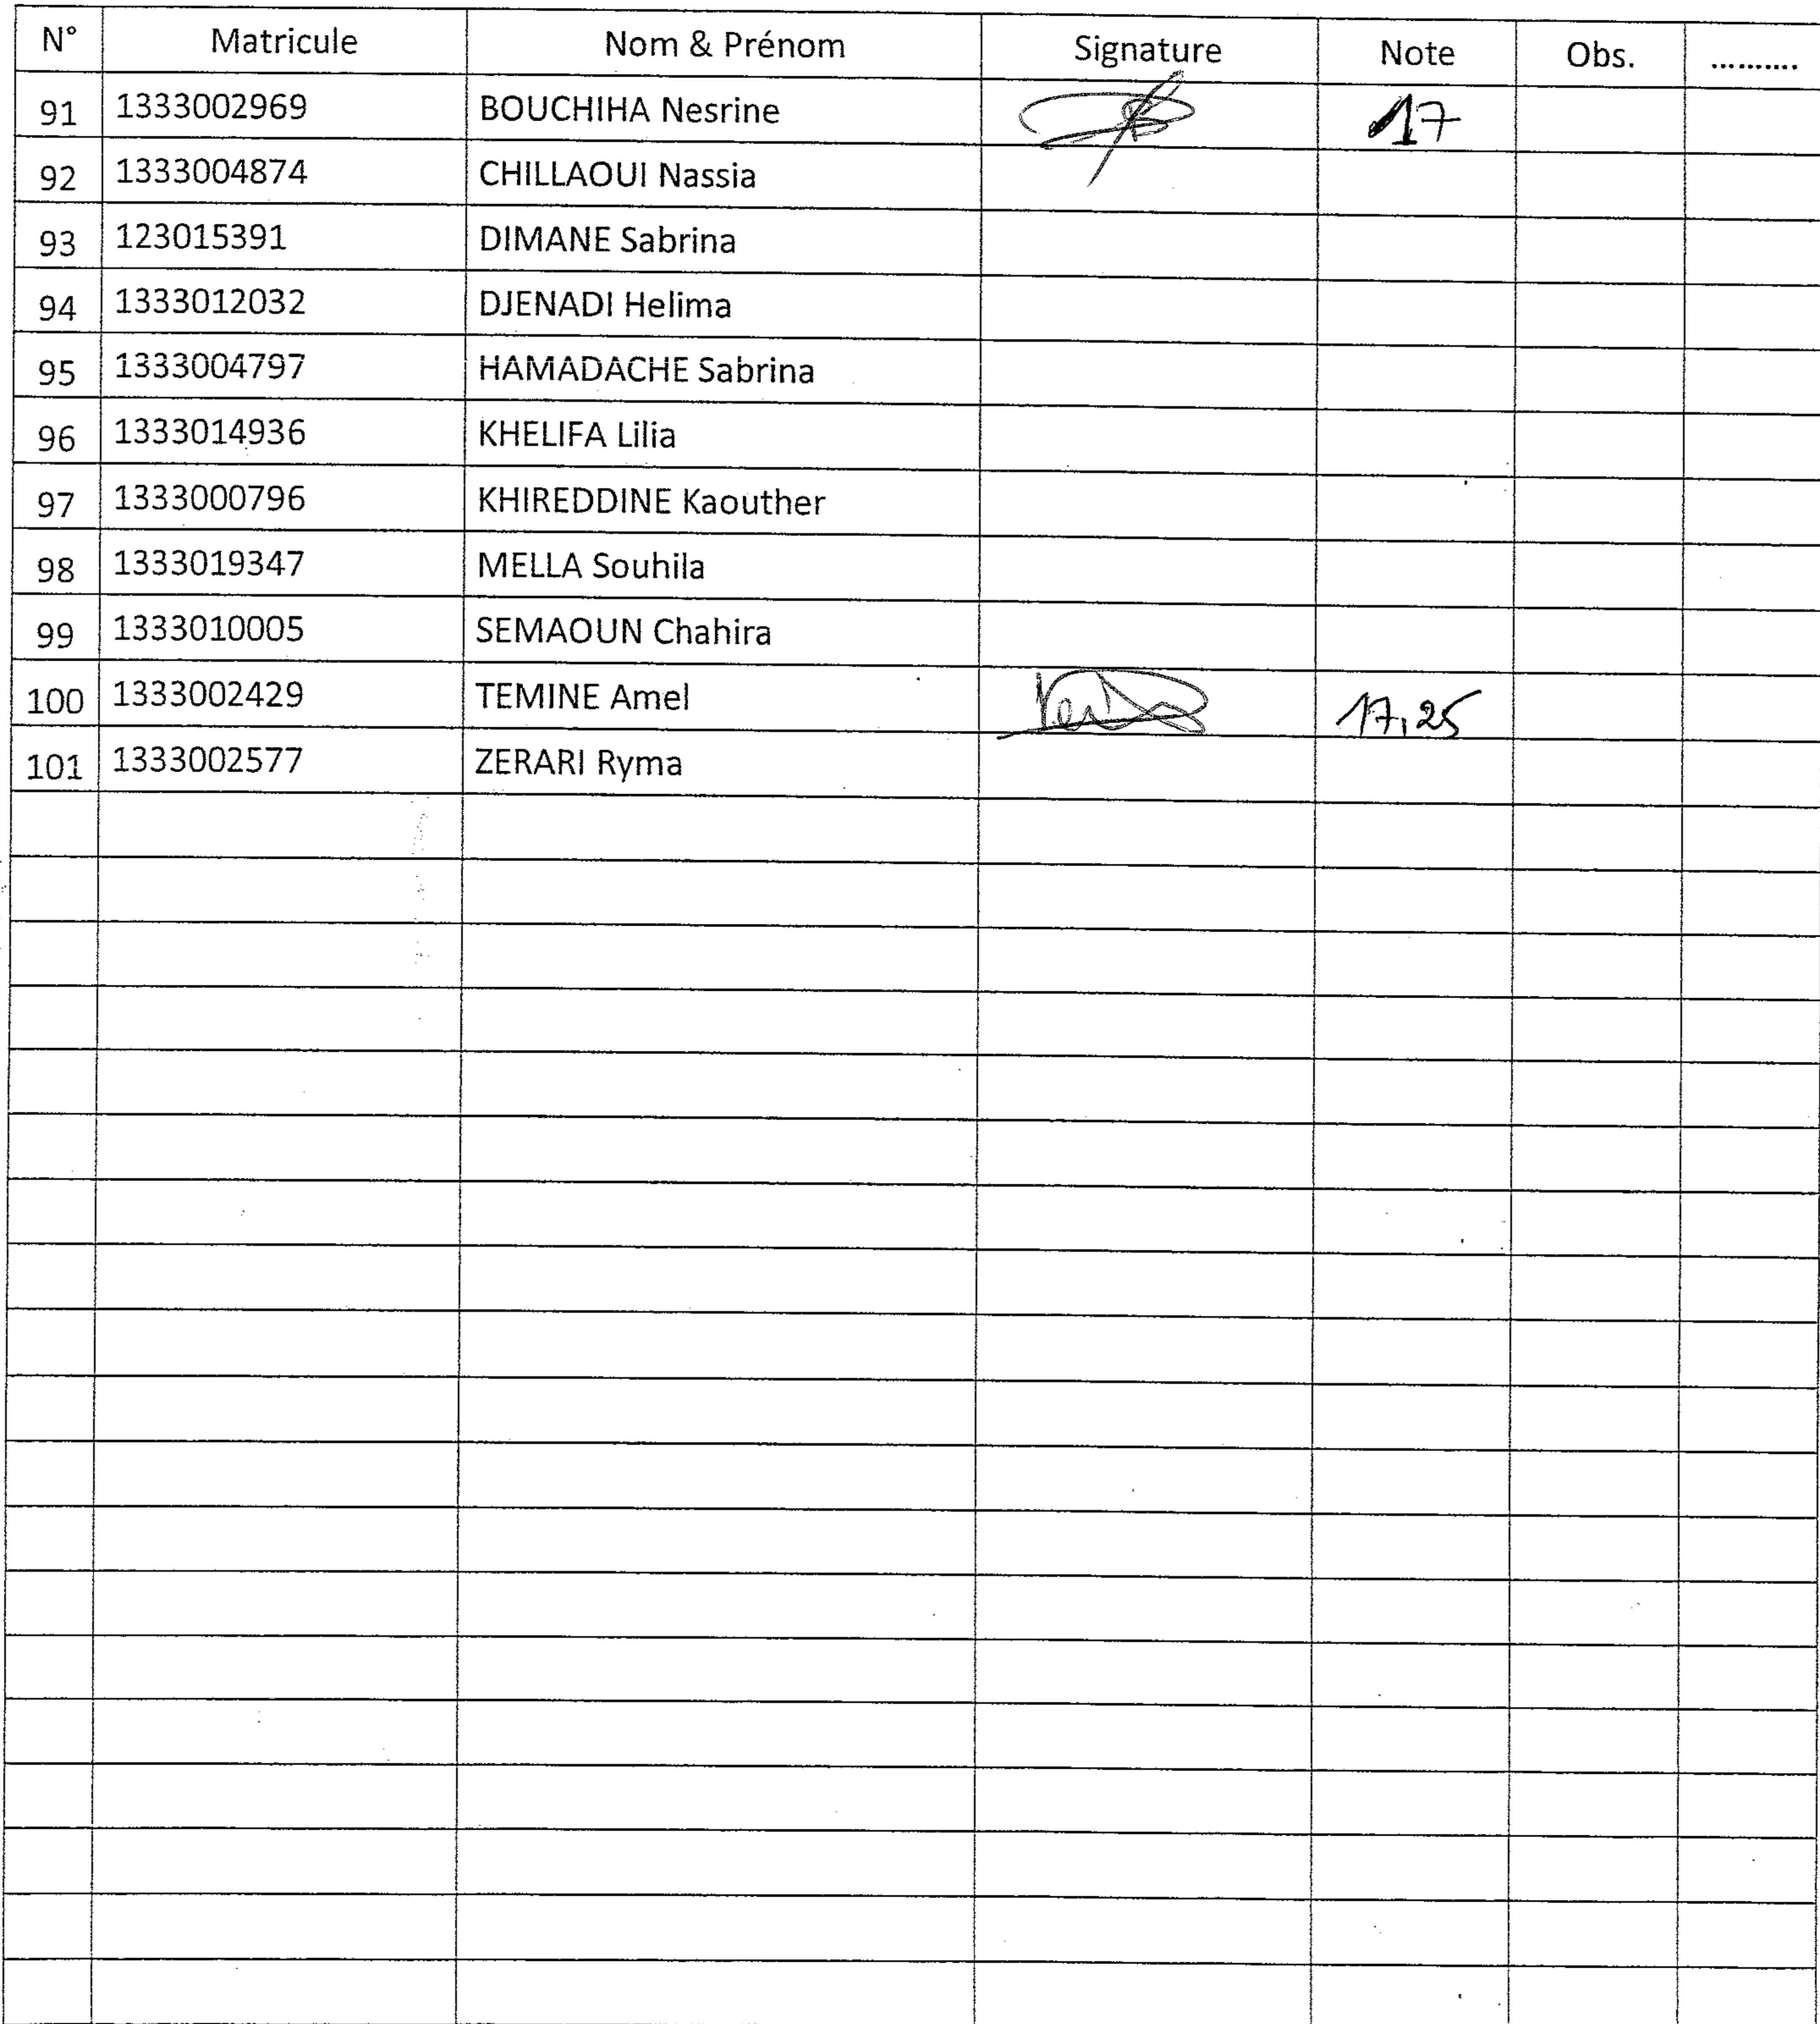 N° Matricule Nom & Prénom Signature Note Obs. ..........
91 1333002969 BOUCHIHA Nesrine 17
92 1333004874 CHILLAOUI Nassia
93 123015391 DIMANE Sabrina
94 1333012032 DJENADI Helima
95 1333004797 HAMADACHE Sabrina
96 1333014936 KHELIFA Lilia
97 1333000796 KHIREDDINE Kaouther
98 1333019347 MELLA Souhila
99 1333010005 SEMAOUN Chahira
100 1333002429 TEMINE Amel 17,25
101 1333002577 ZERARI Ryma